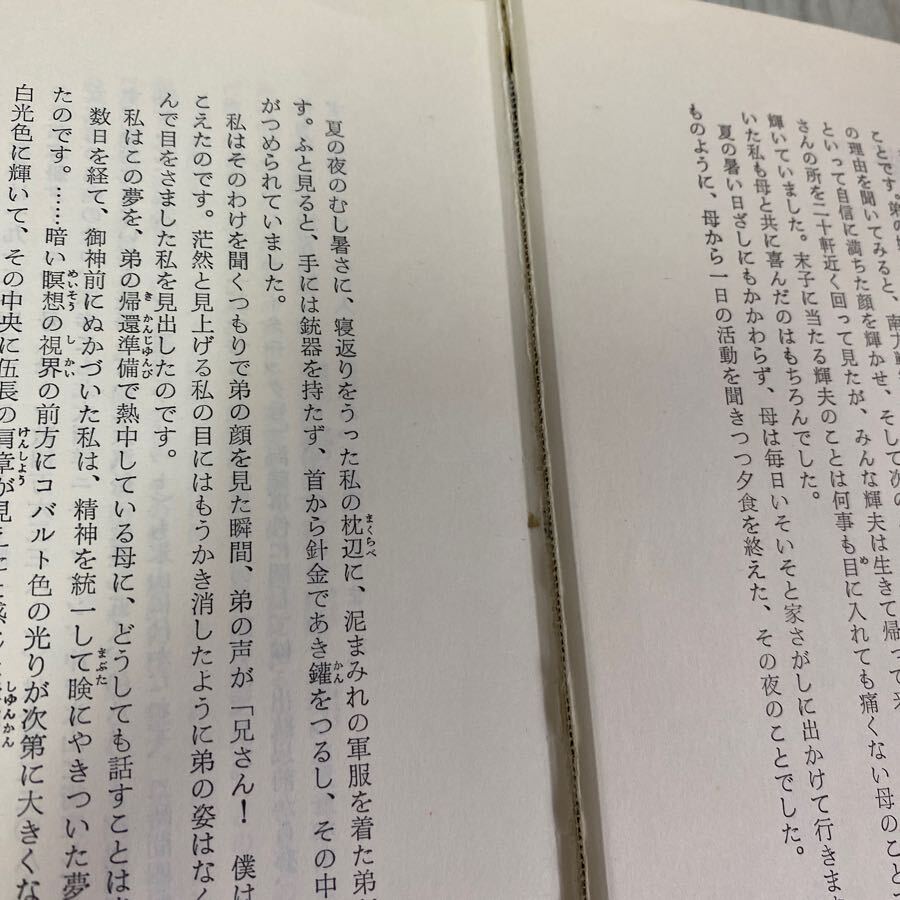 ことです。弟の
の理由を聞いてみると、南方戦
といって自信に満ちた顔を輝かせ、そして次の
さんの所を二十軒近く回って見たが、みんな輝夫は生きて帰って来
輝いていました。末子に当たる輝夫のことは何事も目に入れても痛くない母のことで
いた私も母と共に喜んだのはもちろんでした。
夏の暑い日ざしにもかかわらず、母は毎日いそいそと家さがしに出かけて行きます
ものように、母から一日の活動を聞きつつ夕食を終えた、その夜のことでした。
夏の夜のむし暑さに、寝返りをうった私の枕辺に、泥まみれの軍服を着た弟が
す。ふと見ると、手には銃器を持たず、首から針金であき鑵をつるし、その中
がつめられていました。
私はそのわけを聞くつもりで弟の顔を見た瞬間、弟の声が「兄さん！　僕は
こえたのです。茫然と見上げる私の目にはもうかき消したように弟の姿はなく
んで目をさました私を見出したのです。
私はこの夢を、弟の帰還準備で熱中している母に、どうしても話すことは
数日を経て、御神前にぬかづいた私は、精神を統一して瞼にやきついた夢
たのです。……暗い瞑想の視界の前方にコバルト色の光りが次第に大きくな
白光色に輝いて、その中央に伍長の肩章が見えた